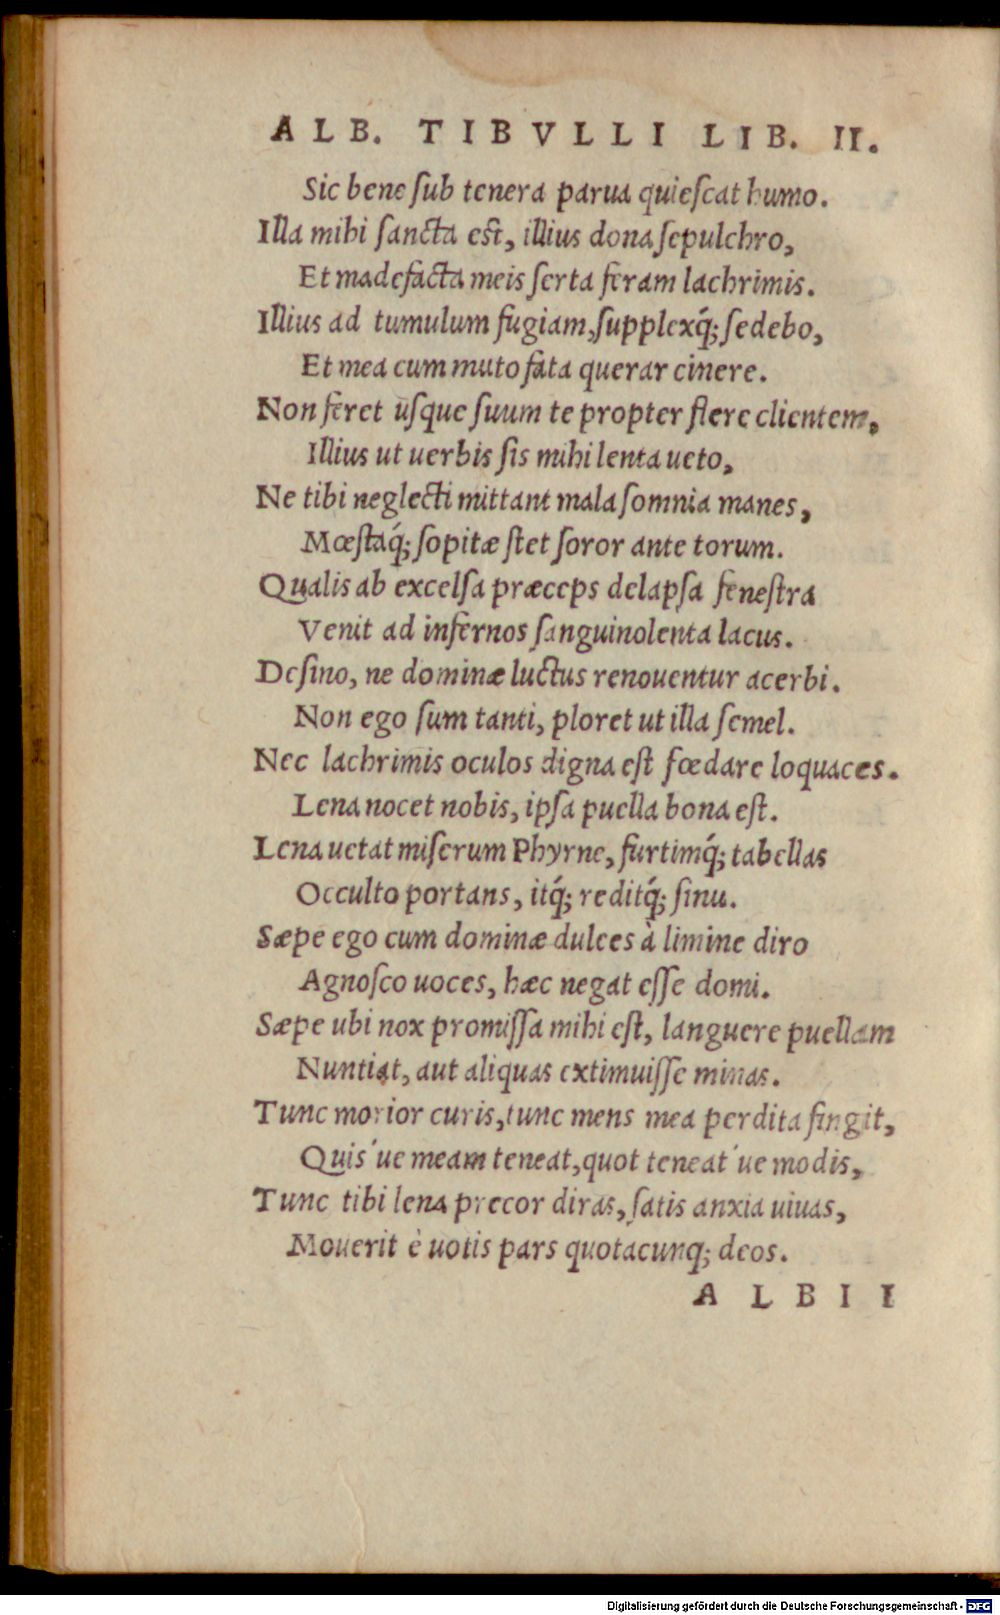 ALB. TIBVLLI LIB. II.
Sic bene ſub tenera parua quieſcat humo.
Illa mihi ſancta eſt, illius dona ſepulchro,
Et madefacta meis ſerta feram lachrimis.
Illius ad tumulum fugiam, ſupplexq́; ſedebo,
Et mea cum muto fata querar cinere.
Non feret uſque ſuum te propter flere clientem,
Illius ut uerbis ſis mihi lenta ueto,
Ne tibi neglecti mittant mala ſomnia manes,
Mœſtaq́; ſopitæ ſtet ſoror ante torum.
Qualis ab excelſa præceps delapſa feneſtra
Venit ad infernos ſanguinolenta lacus.
Deſino, ne dominæ luctus renouentur acerbi.
Non ego ſum tanti, ploret ut illa ſemel.
Nec lachrimis oculos digna eſt fœdare loquaces.
Lena nocet nobis, ipſa puella bona eſt.
Lena uetat miſerum Phyrne, furtimq́; tabellas
Occulto portans, itq́; reditq́; ſinu.
Sæpe ego cum dominæ dulces à limine diro
Agnoſco uoces, hæc negat eſſe domi.
Sæpe ubi nox promiſſa mihi eſt, languere puellam
Nuntiat, aut aliquas extimuiſſe minas.
Tunc morior curis, tunc mens mea perdita fingit,
Quis´ue meam teneat, quot teneat´ue modis,
Tunc tibi lena precor diras, ſatis anxia uiuas,
Mouerit è uotis pars quotacunq; deos.
ALBII
Digitalisierung gefördert durch die Deutsche Forschungsgemeinschaft - DFG